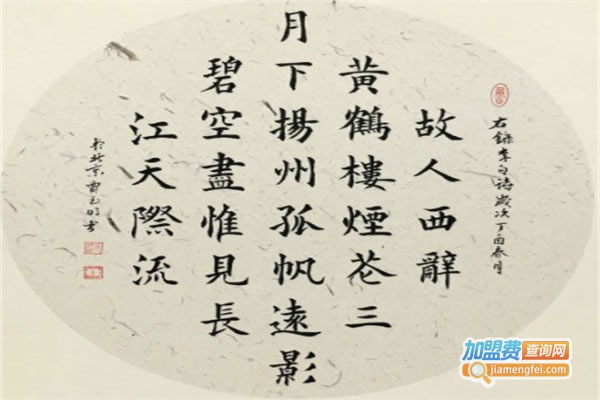 右錄李白詩歲次丁酉春月
故人西辭
黃鶴樓煙花三
月下揚州孤帆遠影
碧空盡惟見長
江天際流
於北京
加盟费查询网
jiamengfei.com